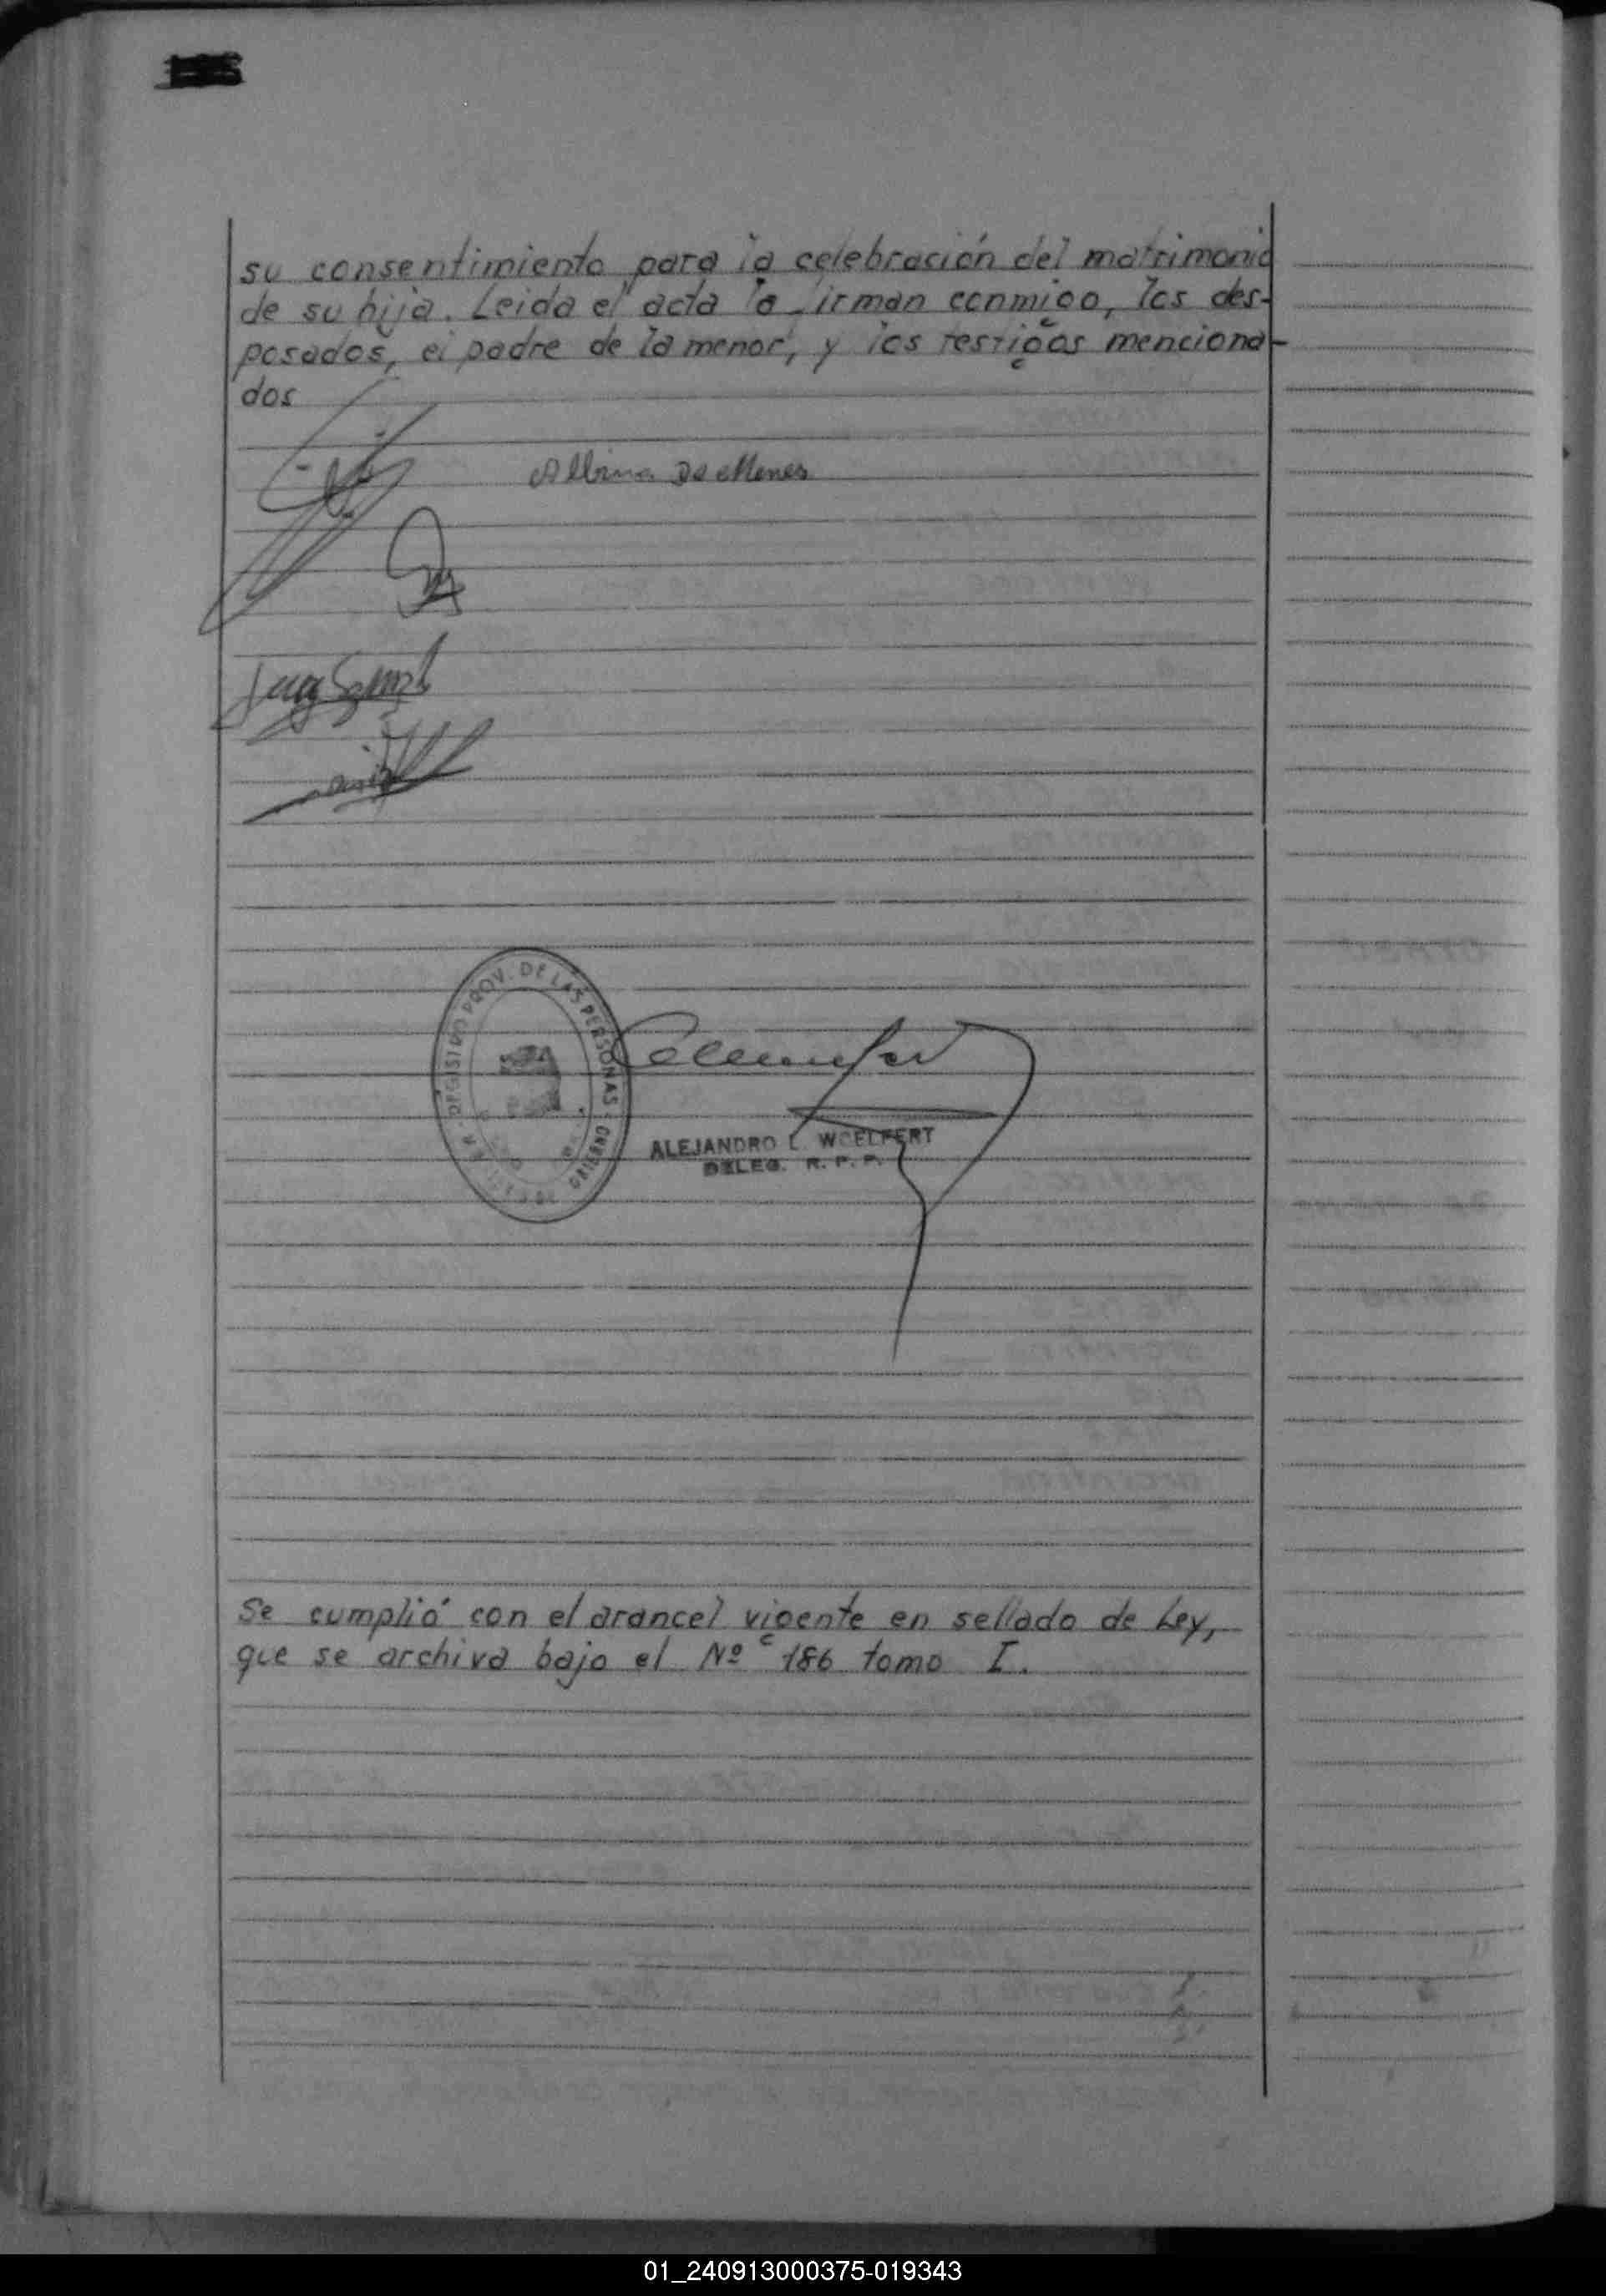 su consentimiento para la celebración del matrimonio
de su hija. Leida el acta la firman conmigo, los des-
posados, el padre de la menor, y los testigos menciona-
dos
Albina De Menes
REGISTRO PROV. DE LAS PERSONAS
ALEJANDRO L. WOELFERT
DELEG. R. P. P.
Se cumplió con el arancel vigente en sellado de Ley,
que se archiva bajo el Nº 186 tomo I.
01_240913000375-019343